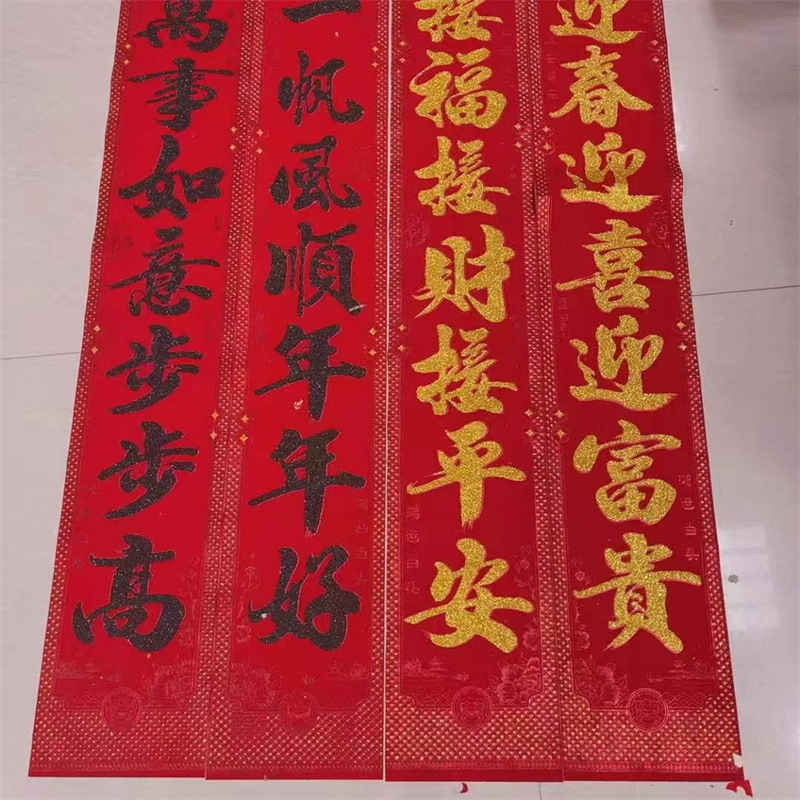 迎春迎喜迎富貴
接福接財接平安
一帆風順年年好
萬事如意步步高